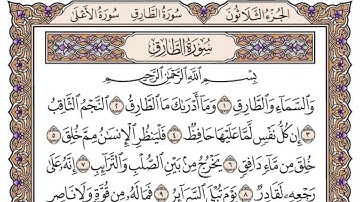 الجزء الثلاثون سورة الطارق سورة الأعلى
سورة الطارق
بسم الله الرحمن الرحيم
والسماء والطارق ١ وما أدراك ما الطارق ٢ النجم الثاقب
٣ إن كل نفس لما عليها حافظ ٤ فلينظر الإنسان مم خلق ٥
خلق من ماء دافق ٦ يخرج من بين الصلب والترائب ٧ إنه على
رجعه لقادر ٨ يوم تبلى السرائر ٩ فما له من قوة ولا ناصر